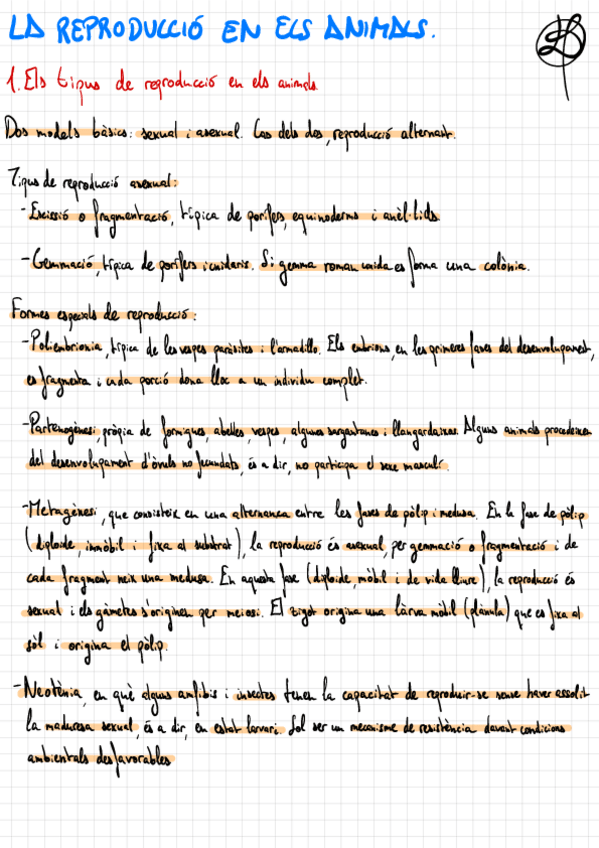 LA REPRODUCCIÓ EN ELS ANIMALS.
1. Els tipus de reproducció en els animals.
Dos models bàsics: sexual i asexual. Cas dels dos, reproducció alternant.
Tipus de reproducció asexual:
- Escissió o fragmentació, típica de porífers, equinoderms i anèl·lids.
- Gemmació, típica de porífers i cnidaris. Si gemma roman unida es forma una colònia.
Formes especials de reproducció:
- Poliembrionia, típica de les vespes paràsites i l'armadillo. Els embrions, en les primeres fases del desenvolupament,
es fragmenta i cada porció dona lloc a un individu complet.
- Partenogènesi, pròpia de formigues, abelles, vespes, algunes sargantanes i llangardaixos. Alguns animals procedeixen
del desenvolupament d'òvuls no fecundats, és a dir, no participa el sexe masculí.
- Metagènesi, que consisteix en una alternança entre les fases de pòlip i medusa. En la fase de pòlip
(diploide, immòbil i fixa al substrat), la reproducció és asexual, per gemmació o fragmentació i de
cada fragment neix una medusa. En aquesta fase (diploide, mòbil i de vida lliure), la reproducció és
sexual i els gàmetes s'originen per meiosi. El zigot origina una làrva mòbil (plànula) que es fixa al
sòl i origina el pòlip.
- Neotènia, en què alguns amfibis i insectes tenen la capacitat de reproduir-se sense haver assolit
la maduresa sexual, és a dir, en estat larvari. Sol ser un mecanisme de resistència davant condicions
ambientals desfavorables